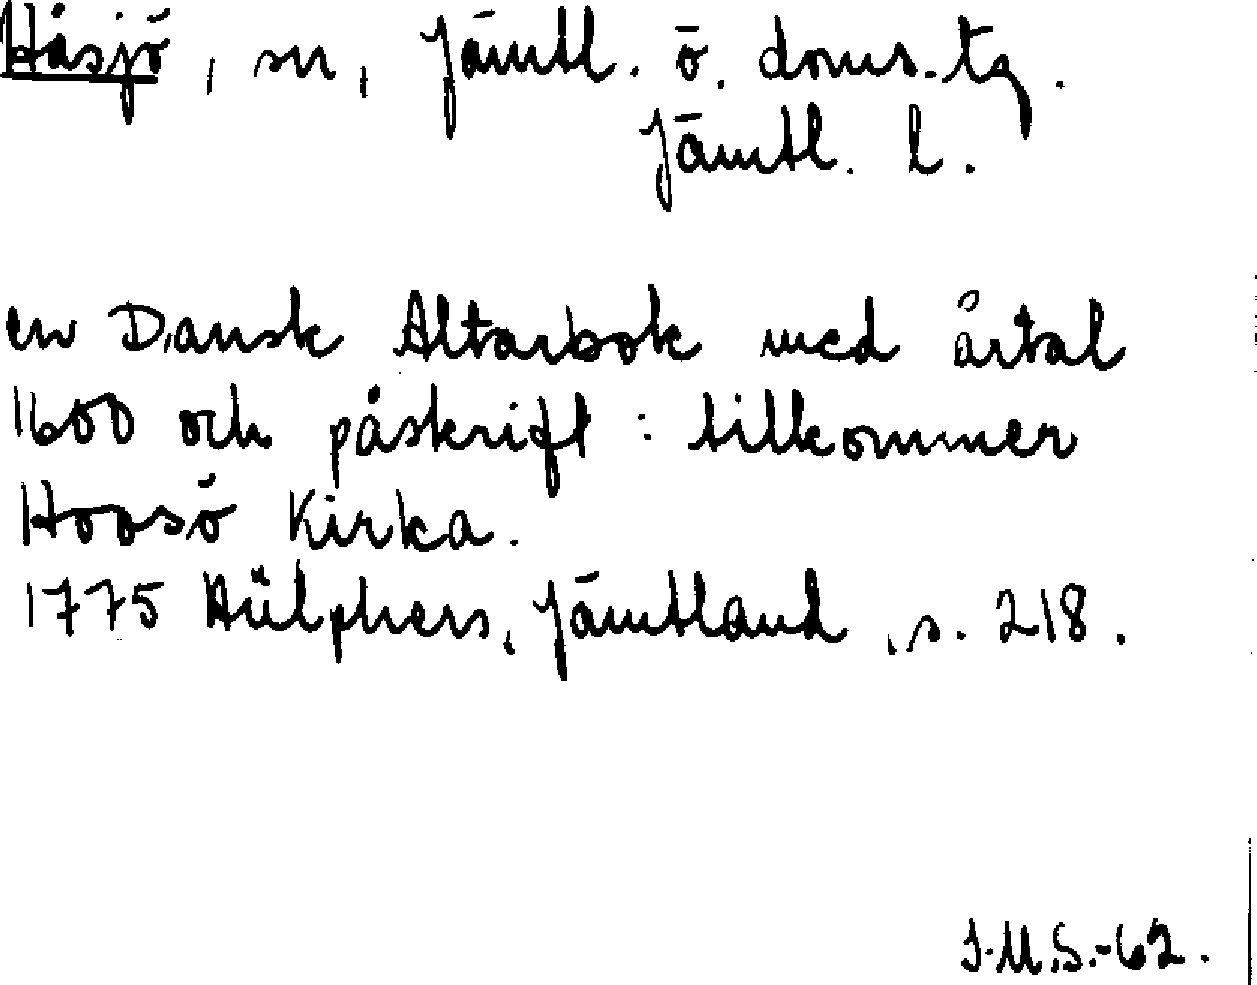 Håsjö, sn, Jämtl. ö. doms.tg.
Jämtl. l.
en Dansk Altarbok med årtal
1600 och påskrift: tilkommer
Hoosö Kirka.
1775 Hülphers, Jämtland, s. 218.
J.M.S.-62.